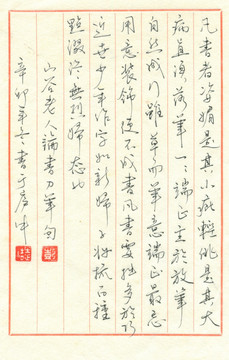 凡書害姿媚是其小疵輕佻是其大
病直須落筆一一端正至於放筆
自然成行雖草而筆意端正最忌
用意裝飾便不成書凡書要拙多於巧
近世少年作字如新婦子妝梳百種
點綴終無烈婦態也
山谷老人論書刀筆句
辛卯年冬書于